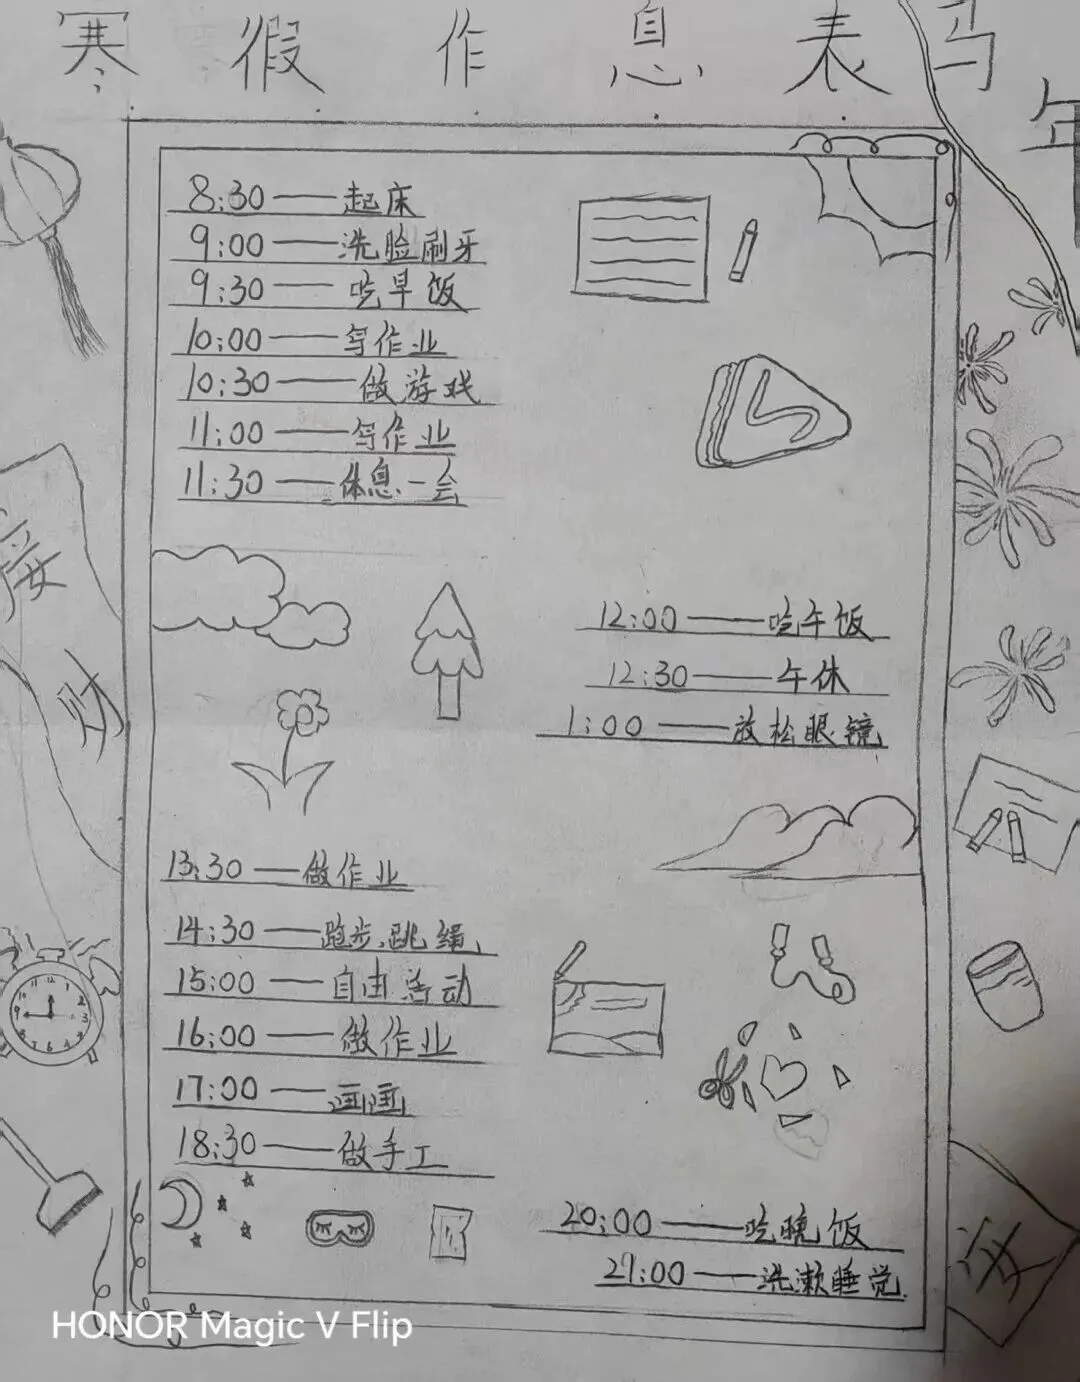 寒假作息表
马年
8:30——起床
9:00——洗脸刷牙
9:30——吃早饭
10:00——写作业
10:30——做游戏
11:00——写作业
11:30——休息一会
接
财
12:00——吃午饭
12:30——午休
1:00——放松眼镜
13:30——做作业
14:30——跑步、跳绳
15:00——自由活动
16:00——做作业
17:00——画画
18:30——做手工
20:00——吃晚饭
21:00——洗漱睡觉
HONOR Magic V Flip